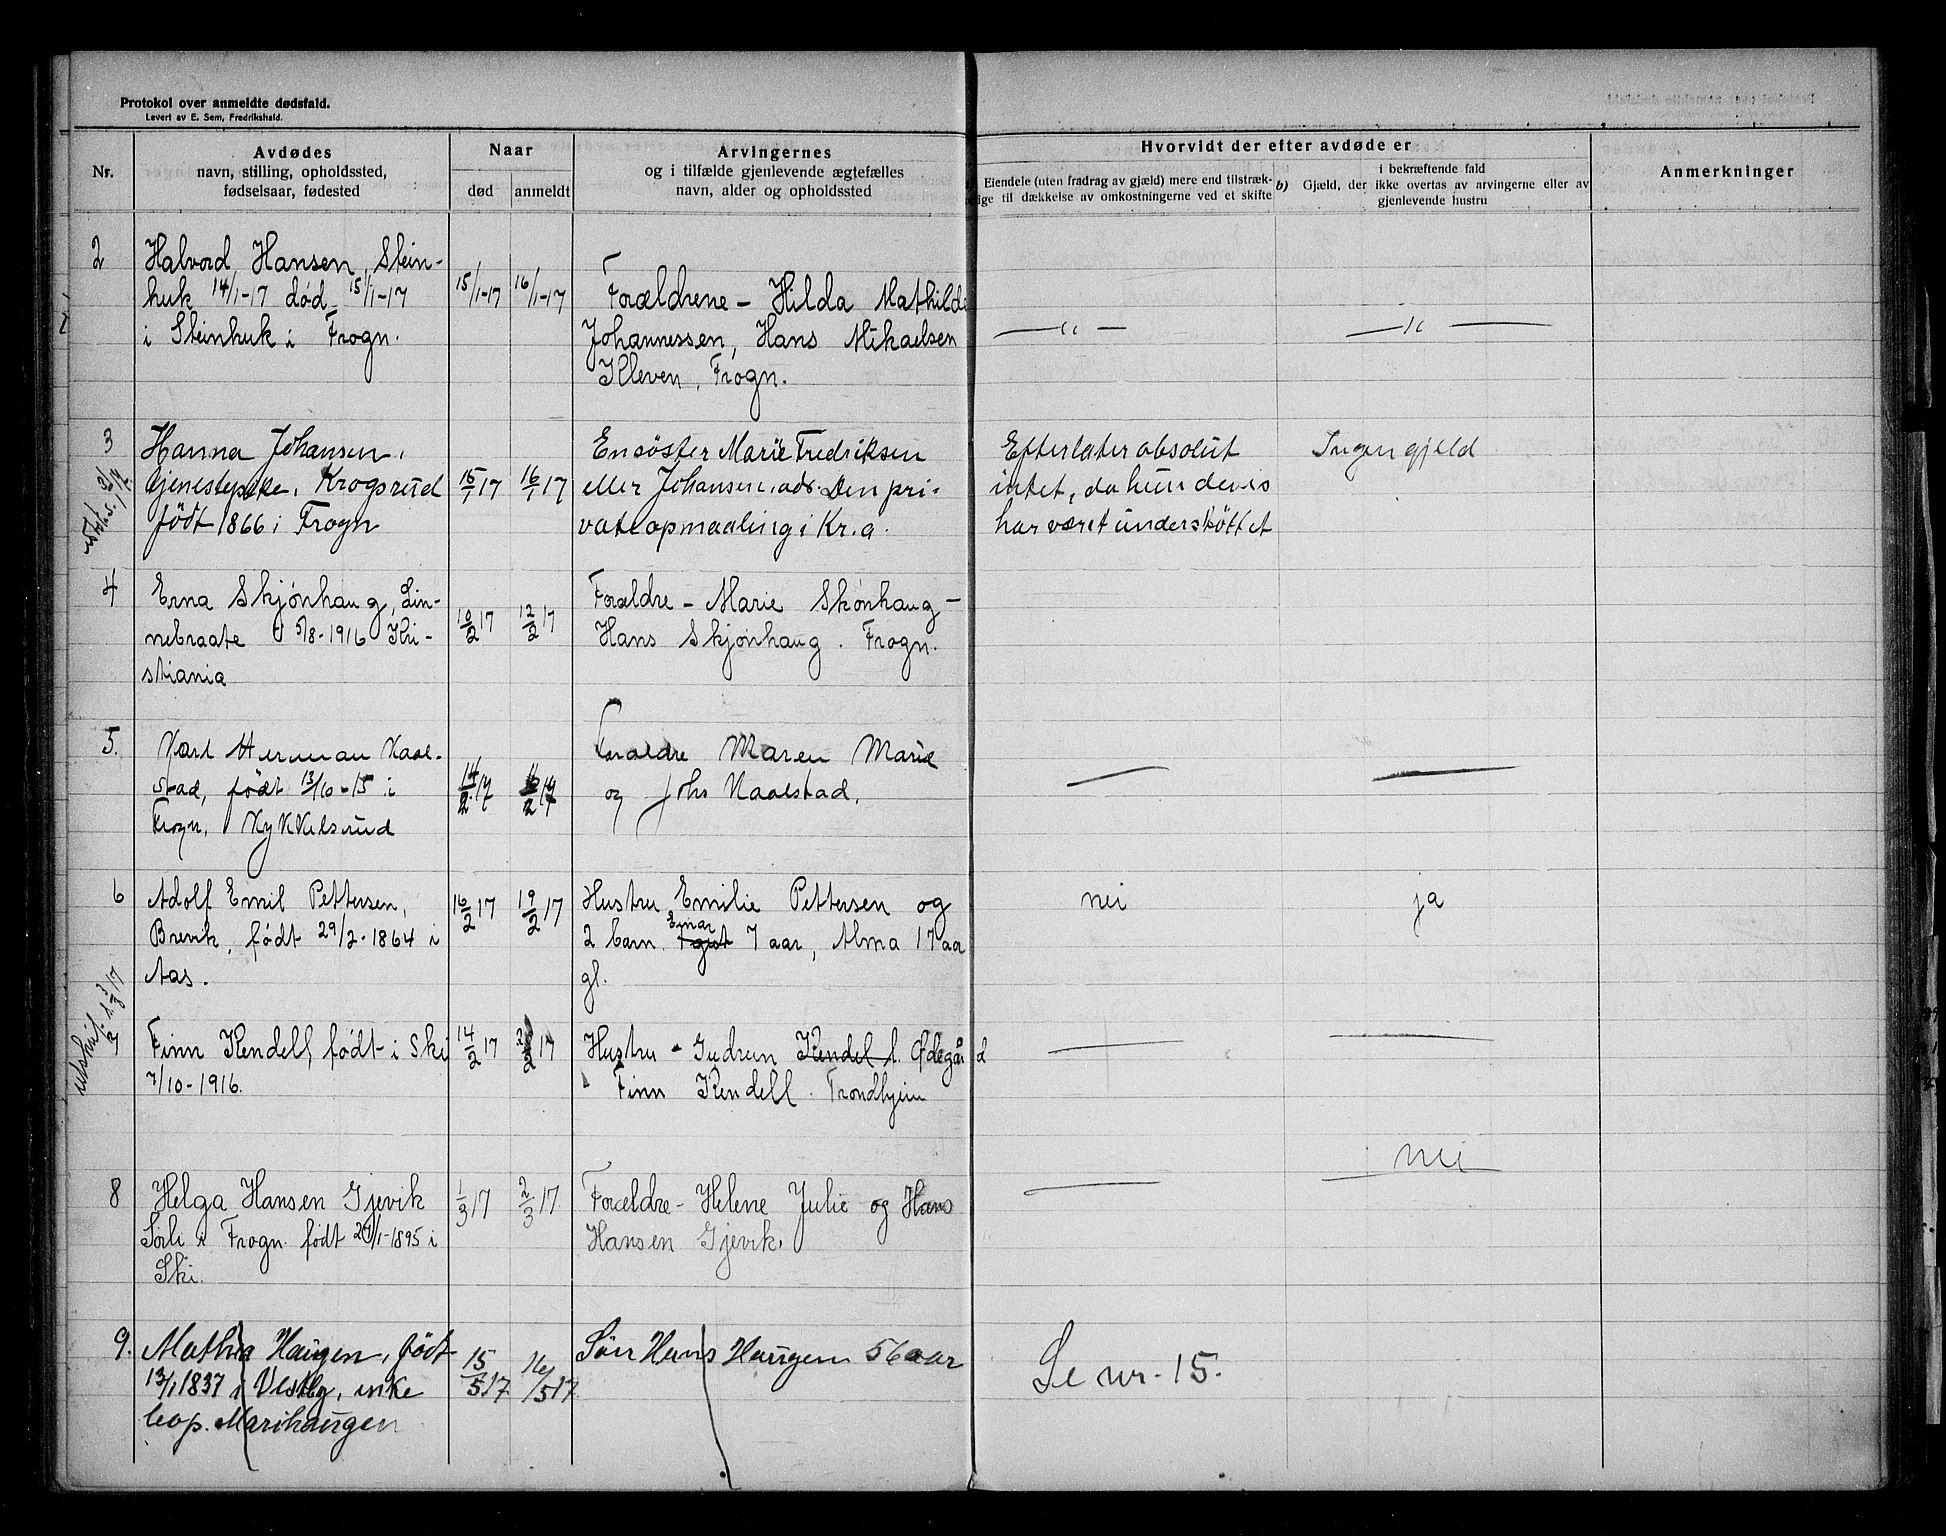 Protokol over anmeldte dødsfald.
Levert av E. Sem, Fredrikshald.
Nr.
Avdødes
navn, stilling, opholdssted,
fødselsaar, fødested
Naar
død
anmeldt
Arvingernes
og i tilfælde gjenlevende ægtefælles
navn, alder og opholdssted
Hvorvidt der efter avdøde er
Eiendele (uten fradrag av gjæld) mere end tilstræk-
ige til dækkelse av omkostningerne ved et skifte
b)
i bekræftende fald
Gjæld, der ikke overtas av arvingerne eller av
gjenlevende hustru
Anmerkninger
2
Halvord Hansen, Stein-
huk 14/1-17 død 15/1-17
i Steinhuk i Frogn.
15/1-17
16/1-17
Forældrene - Hilda Mathilde
Johannessen, Hans Mikaelsen
Kleven, Frogn.
— " —
— " —
3
Hanna Johansen,
tjenestepike, Krogsrud
født 1866 i Frogn
15/1 17
16/1 17
En søster Marie Fredriksen
eller Johansen, adr. Den pri-
vate opmaaling i Kr.a.
Efterlater absolut
intet, da hun delvis
har været understøttet
Ingen gjeld
4
Erna Skjønhaug, Lin-
nebraate 5/8-1916 Kri-
stiania
10/2 17
12/2 17
Forældre - Marie Skønhaug -
Hans Skjønhaug. Frogn.
5.
Karl Herman Kaal-
stad, født 13/10-15 i
Frogn, Kykkelsrud
14/2 17
16/2 17
Foraldre Maren Marie
og Johs Kaalstad.
6
Adolf Emil Pettersen,
Brevik, født 29/2-1864 i
Aas.
16/2 17
19/2 17
Hustru Emilie Pettersen og
Einar
2 barn 7 aar, Alma 17 aar
gl.
nei
ja
utskr. 1/3 17
7
Finn Kendell født i Ski
7/10-1916.
14/2 17
17
Hustru - Gudrun Kendel f. Ødegård
Finn Kendell. Trondhjem
8
Helga Hansen Gjevik
Sørli i Frogn født 27/1-1895 i
Ski.
1/3 17
2/3 17
Forældre - Helene Julie og Hans
Hansen Gjevik.
nei
9.
Mathea Haugen, født
13/1 1837 i Vestby, enke
bop. Marihaugen
15/5 17
16/5 17
Søn Hans Haugen 56 aar
Se nr. 15.